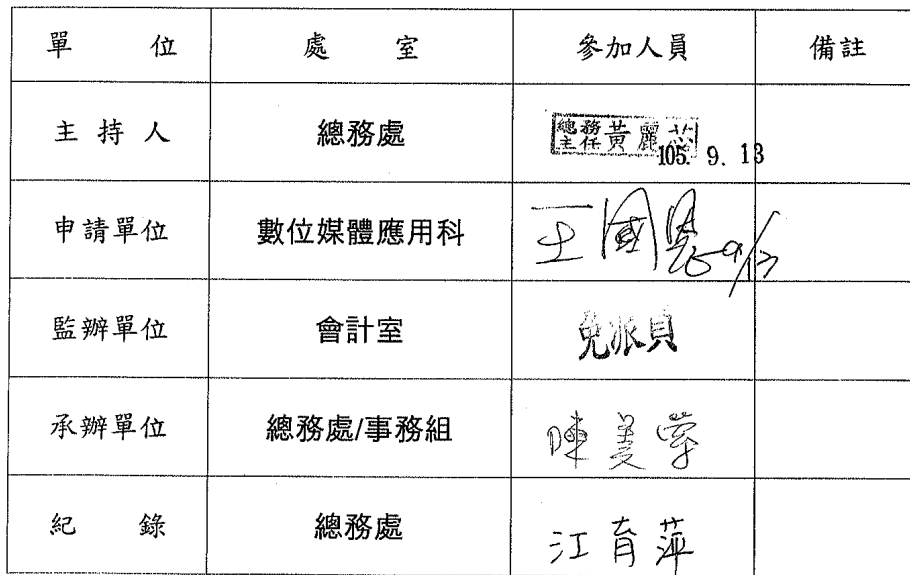 單 位 處 室 參加人員 備註
主 持 人 總務處 總務主任 黃麗蕊 105. 9. 13
申請單位 數位媒體應用科 王國 9/13
監辦單位 會計室 免派員
承辦單位 總務處/事務組 陳美
紀 錄 總務處 江育萍